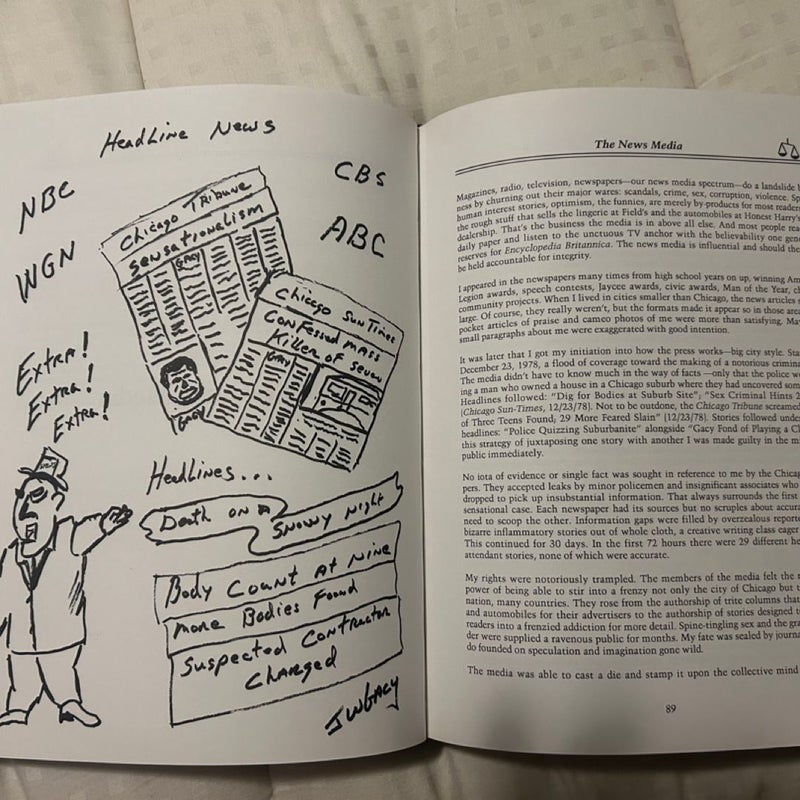 Headline News
NBC
WGN
CBS
ABC
Chicago Tribune
Sensationalism
GACY
GACY
Chicago Sun Times
Confessed Mass
Killer of Seven
GACY
Extra!
Extra!
Extra!
Headlines...
Death on a
Snowy Night
Body Count At Nine
More Bodies Found
Suspected Contractor
Charged
JWGACY
The News Media
Magazines, radio, television, newspapers—our news media spectrum—do a landslide
ness by churning out their major wares: scandals, crime, sex, corruption, violence.
human interest stories, optimism, the funnies, are merely by-products for most
the rough stuff that sells the lingerie at Field's and the automobiles at Honest Harry's
dealership. That's the business the media is in above all else. And most people
daily paper and listen to the unctuous TV anchor with the believability one
reserves for Encyclopedia Britannica. The news media is influential and should
be held accountable for integrity.
I appeared in the newspapers many times from high school years on up, winning
Legion awards, speech contests, Jaycee awards, civic awards, Man of the Year,
community projects. When I lived in cities smaller than Chicago, the news articles
large. Of course, they really weren't, but the formats made it appear so in those
pocket articles of praise and cameo photos of me were more than satisfying.
small paragraphs about me were exaggerated with good intention.
It was later that I got my initiation into how the press works—big city style.
December 23, 1978, a flood of coverage toward the making of a notorious
The media didn't have to know much in the way of facts—only that the police
ing a man who owned a house in a Chicago suburb where they had uncovered
Headlines followed: "Dig for Bodies at Suburb Site"; "Sex Criminal Hints
(Chicago Sun-Times, 12/23/78). Not to be outdone, the Chicago Tribune screamed
of Three Teens Found; 29 More Feared Slain" (12/23/78). Stories followed
headlines: "Police Quizzing Suburbanite" alongside "Gacy Fond of Playing a
this strategy of juxtaposing one story with another I was made guilty in the
public immediately.
No iota of evidence or single fact was sought in reference to me by the
pers. They accepted leaks by minor policemen and insignificant associates who
dropped to pick up insubstantial information. That always surrounds the first
sensational case. Each newspaper had its sources but no scruples about
need to scoop the other. Information gaps were filled by overzealous
bizarre inflammatory stories out of whole cloth, a creative writing class eager
This continued for 30 days. In the first 72 hours there were 29 different
attendant stories, none of which were accurate.
My rights were notoriously trampled. The members of the media felt the
power of being able to stir into a frenzy not only the city of Chicago but
nation, many countries. They rose from the authorship of trite columns that
and automobiles for their advertisers to the authorship of stories designed
readers into a frenzied addiction for more detail. Spine-tingling sex and the
der were supplied a ravenous public for months. My fate was sealed by
do founded on speculation and imagination gone wild.
The media was able to cast a die and stamp it upon the collective mind
89